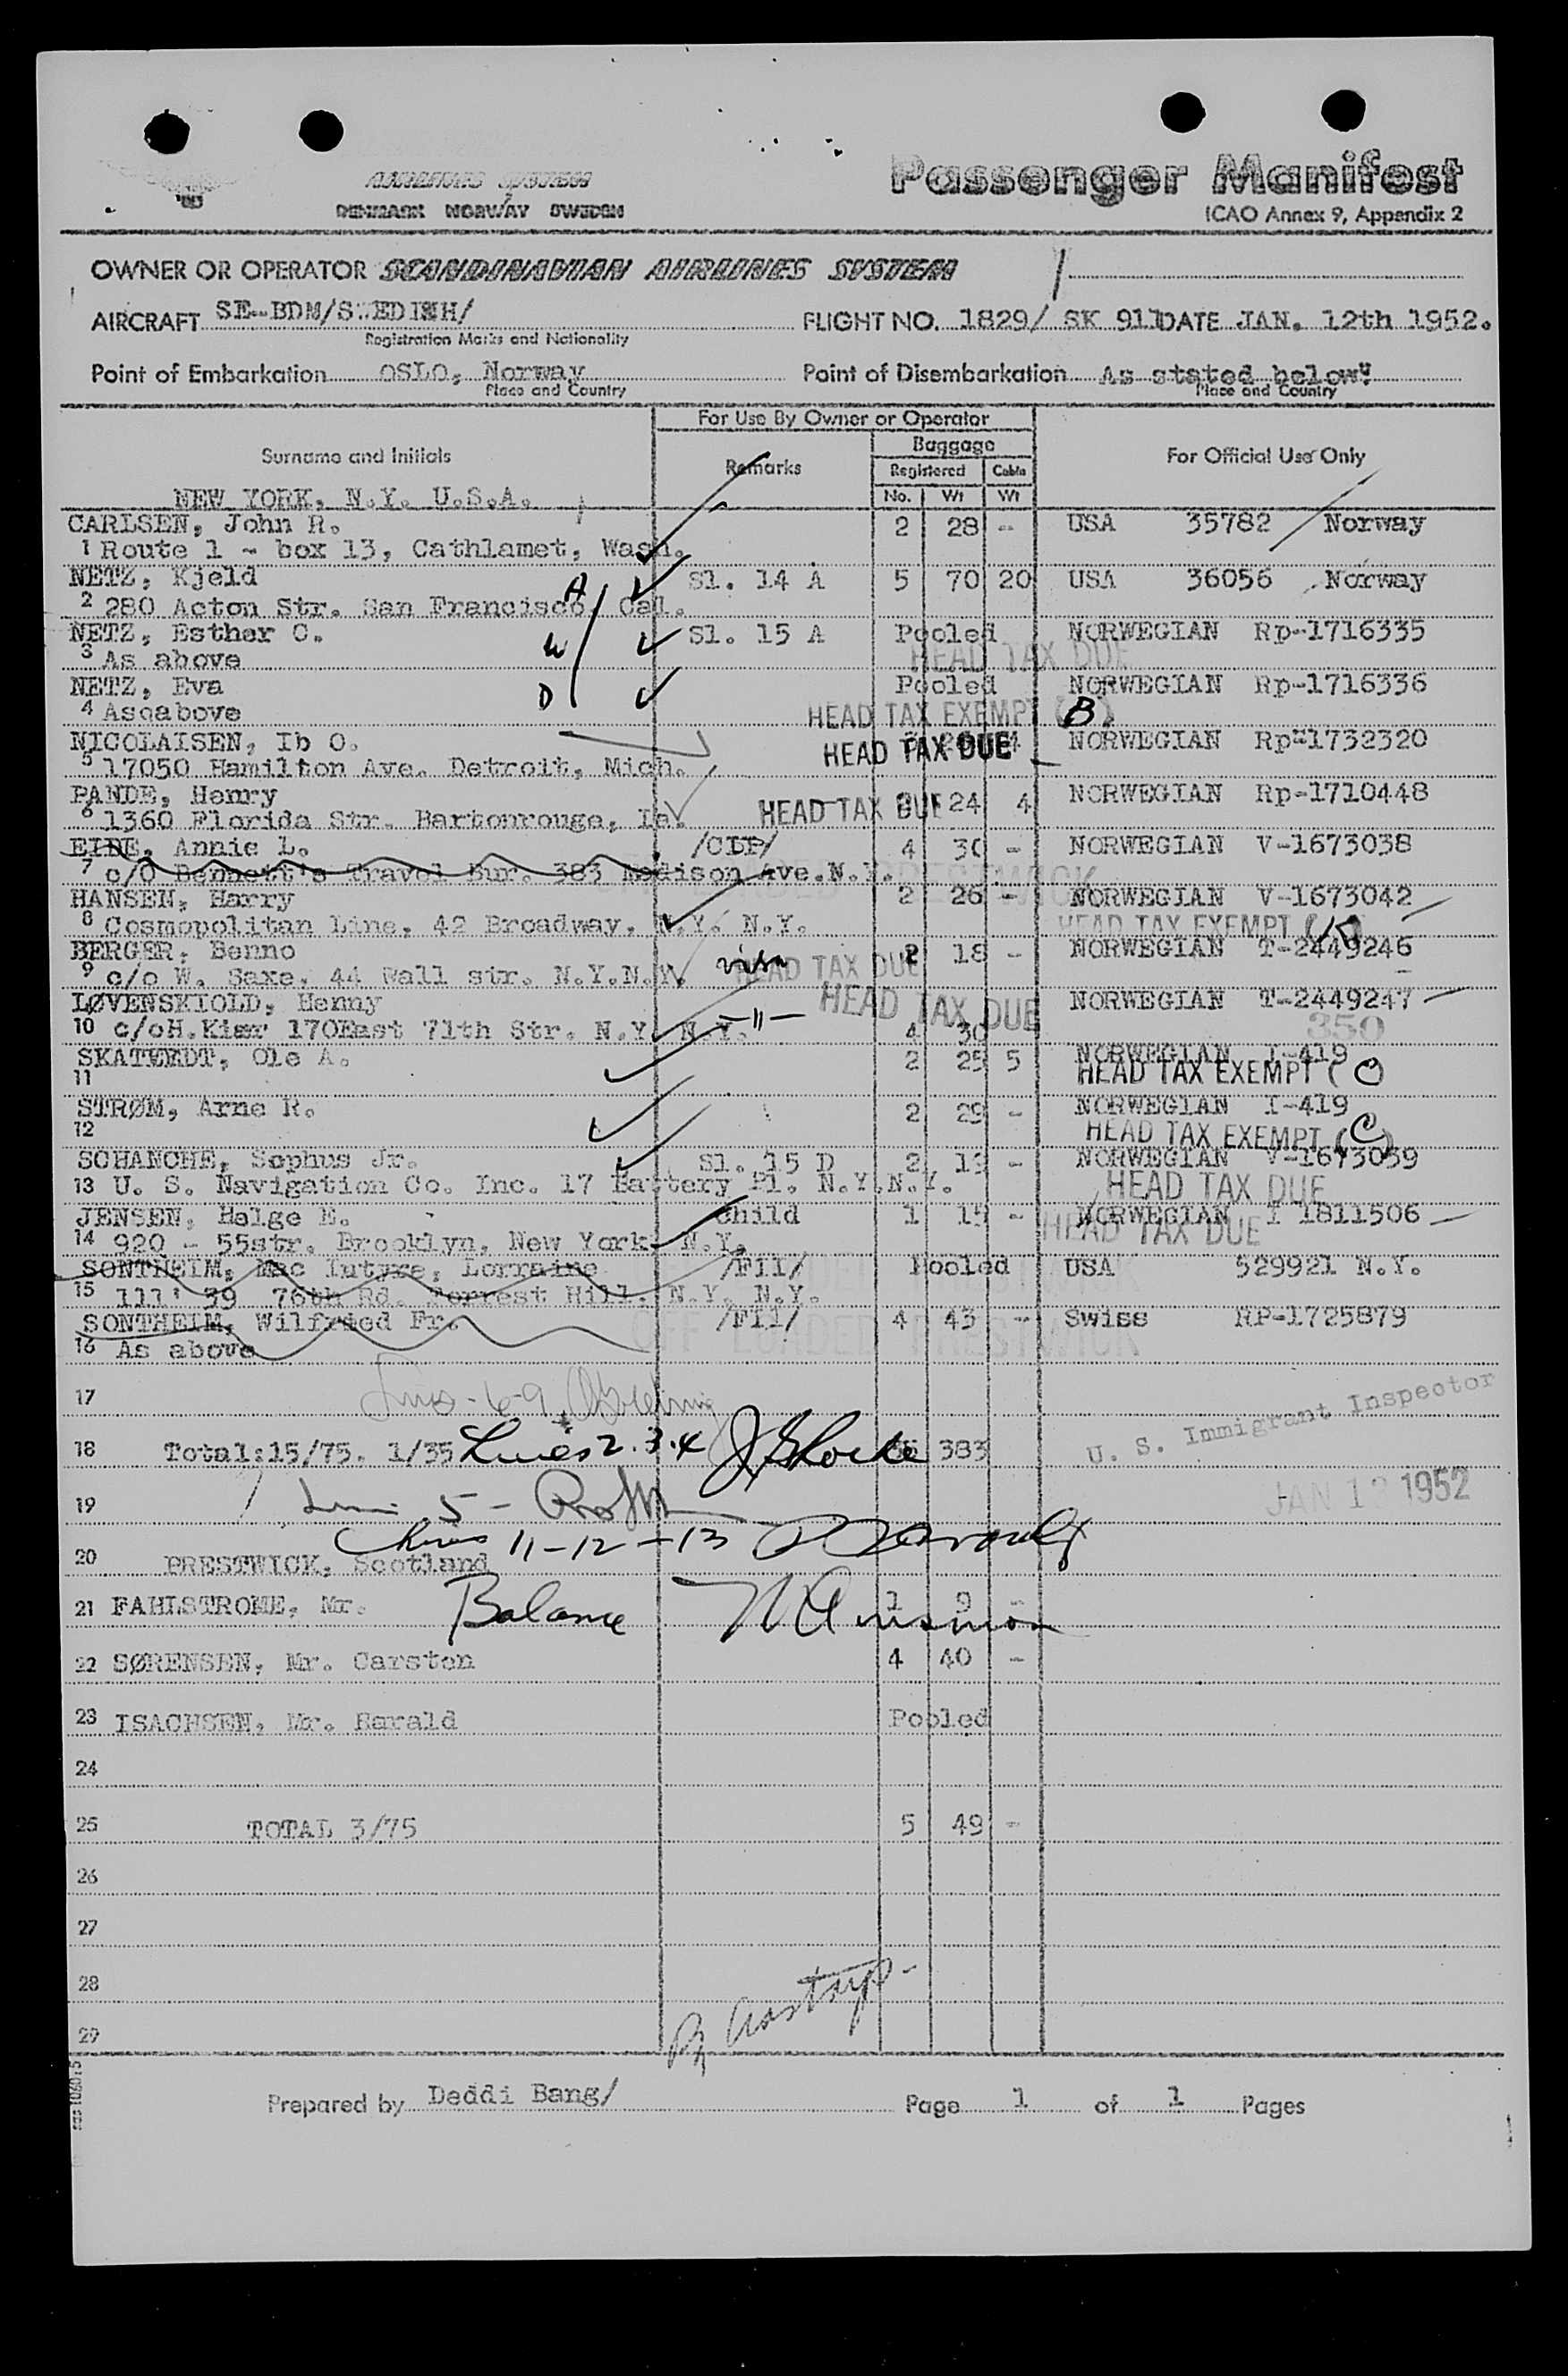 AIRLINES SYSTEM
DENMARK NORWAY SWEDEN
Passenger Manifest
ICAO Annex 9, Appendix 2
OWNER OR OPERATOR SCANDINAVIAN AIRLINES SYSTEM
AIRCRAFT SE-BDM/SWEDISH/ FLIGHT NO. 1829/ SK 911 DATE JAN. 12th 1952.
Registration Marks and Nationality
Point of Embarkation OSLO, Norway Point of Disembarkation As stated below
Place and Country Place and Country
For Use By Owner or Operator
Baggage
Surname and Initials Remarks Registered Cabin For Official Use Only
No. Wt Wt
NEW YORK, N.Y. U.S.A.
CARLSEN, John R. 2 28 - USA 35782 Norway
1 Route 1 - box 13, Cathlamet, Wash.
NETZ, Kjeld A Sl. 14 A 5 70 20 USA 36056 Norway
2 280 Acton Str. San Francisco, Cal.
NETZ, Esther C. W Sl. 15 A Pooled NORWEGIAN Rp-1716335
3 As above HEAD TAX DUE
NETZ, Eva D Pooled NORWEGIAN Rp-1716336
4 Asoabove HEAD TAX EXEMPT (B)
NICOLAISEN, Ib O. HEAD TAX DUE NORWEGIAN Rp-1732320
5 17050 Hamilton Ave. Detroit, Mich.
PANDE, Henry 24 4 NORWEGIAN Rp-1710448
6 1360 Florida Str. Bartonrouge, La. HEAD TAX DUE
EIDE, Annie L. /CLP/ 4 30 - NORWEGIAN V-1673038
7 c/o Bennett's Travel Bur. 383 Madison Ave.N.Y.
OFF LOADED PRESTWICK
HANSEN, Harry 2 26 - NORWEGIAN V-1673042
8 Cosmopolitan Line, 42 Broadway, N.Y. N.Y. HEAD TAX EXEMPT
BERGER, Benno 2 18 - NORWEGIAN T-2449246
9 c/o W. Saxe, 44 Wall str. N.Y.N.Y. visa HEAD TAX DUE
LØVENSKIOLD, Henny HEAD TAX DUE NORWEGIAN T-2449247
10 c/oH.Kier 170East 71th Str. N.Y. N.Y. -"- 4 30 350
SKATTEDT, Ole A. 2 25 5 NORWEGIAN I-419
11 HEAD TAX EXEMPT (
STRØM, Arne R. 2 29 - NORWEGIAN I-419
12 HEAD TAX EXEMPT (C)
SCHANCHE, Sophus Jr. Sl. 15 D 2 19 - NORWEGIAN V-1673039
13 U. S. Navigation Co. Inc. 17 Battery Pl. N.Y.N.Y. HEAD TAX DUE
JENSEN, Helge E. Child 1 15 - NORWEGIAN I 1811506
14 920 - 55str. Brooklyn, New York N.Y. HEAD TAX DUE
SONTHEIM, Mac Intyre, Lorraine /FII/ Pooled USA 529921 N.Y.
15 111' 39 76th Rd. Forrest Hill. N.Y. N.Y.
SONTHEIM, Wilfried Fr. /FII/ 4 43 - Swiss RP-1725879
16 As above OFF LOADED PRESTWICK
17 Lines - 6-9
U. S. Immigrant Inspector
18 Total:15/75. 1/35 Lines 2.3.4 383
JAN 12 1952
19 5 -
20 PRESTWICK, Scotland Lines 11-12-13
21 FAHLSTROME, Mr. Balance 1 9 -
22 SØRENSEN, Mr. Carsten 4 40 -
23 ISACHSEN, Mr. Harald Pooled
24
25 TOTAL 3/75 5 49 -
26
27
28
29
Prepared by Deddi Bang/ Page 1 of 1 Pages